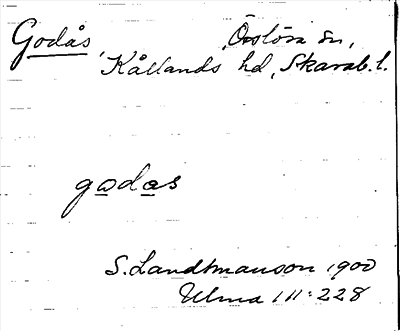 Godås, Örslösa sn,
Kållands hd, Skarab. l.
godas
S. Landtmanson 1900
Ulma 111:228